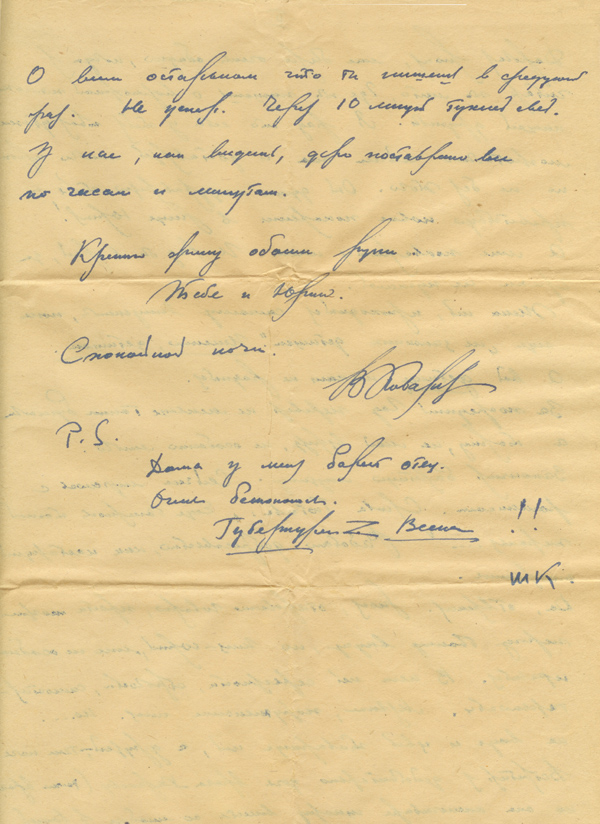 О всем остальном что ты пишешь в следующий
раз. Не успел. Через 10 минут тухнет свет.
У нас, как видишь, дело поставлено
по часам и минутам.
Крепко жму обоим руки
Тебе и Юрию.
Спокойной ночи.
В Ковалев
P.S.
Дома у меня болеет отец.
Очень беспокоюсь.
Весна !!